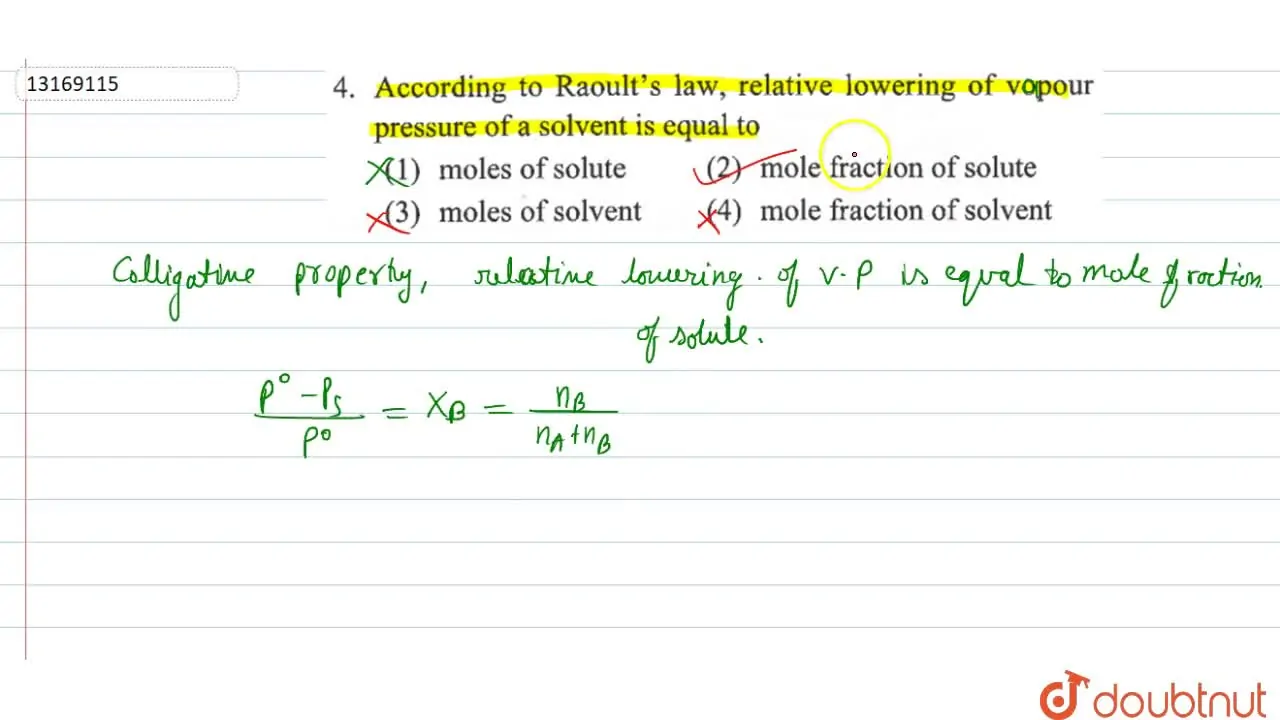 13169115
4. According to Raoult's law, relative lowering of vapour
pressure of a solvent is equal to
(1) moles of solute (2) mole fraction of solute
(3) moles of solvent (4) mole fraction of solvent
Colligative property, relative lowering. of V.P is equal to mole fraction.
of solute.
P° - Ps / P° = XB = nB / nA + nB
doubtnut